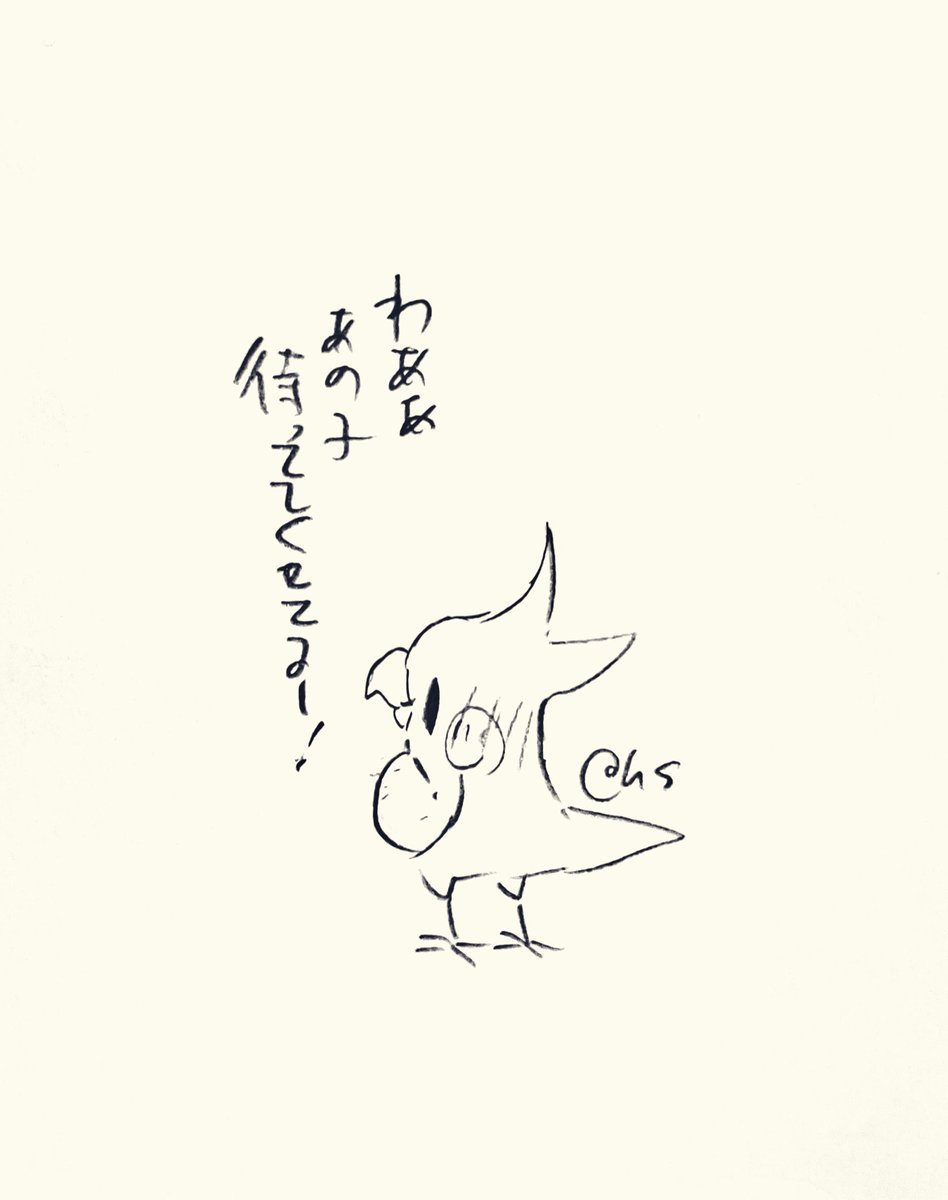 わああ
あの子
待っててくれてるー!
@hs